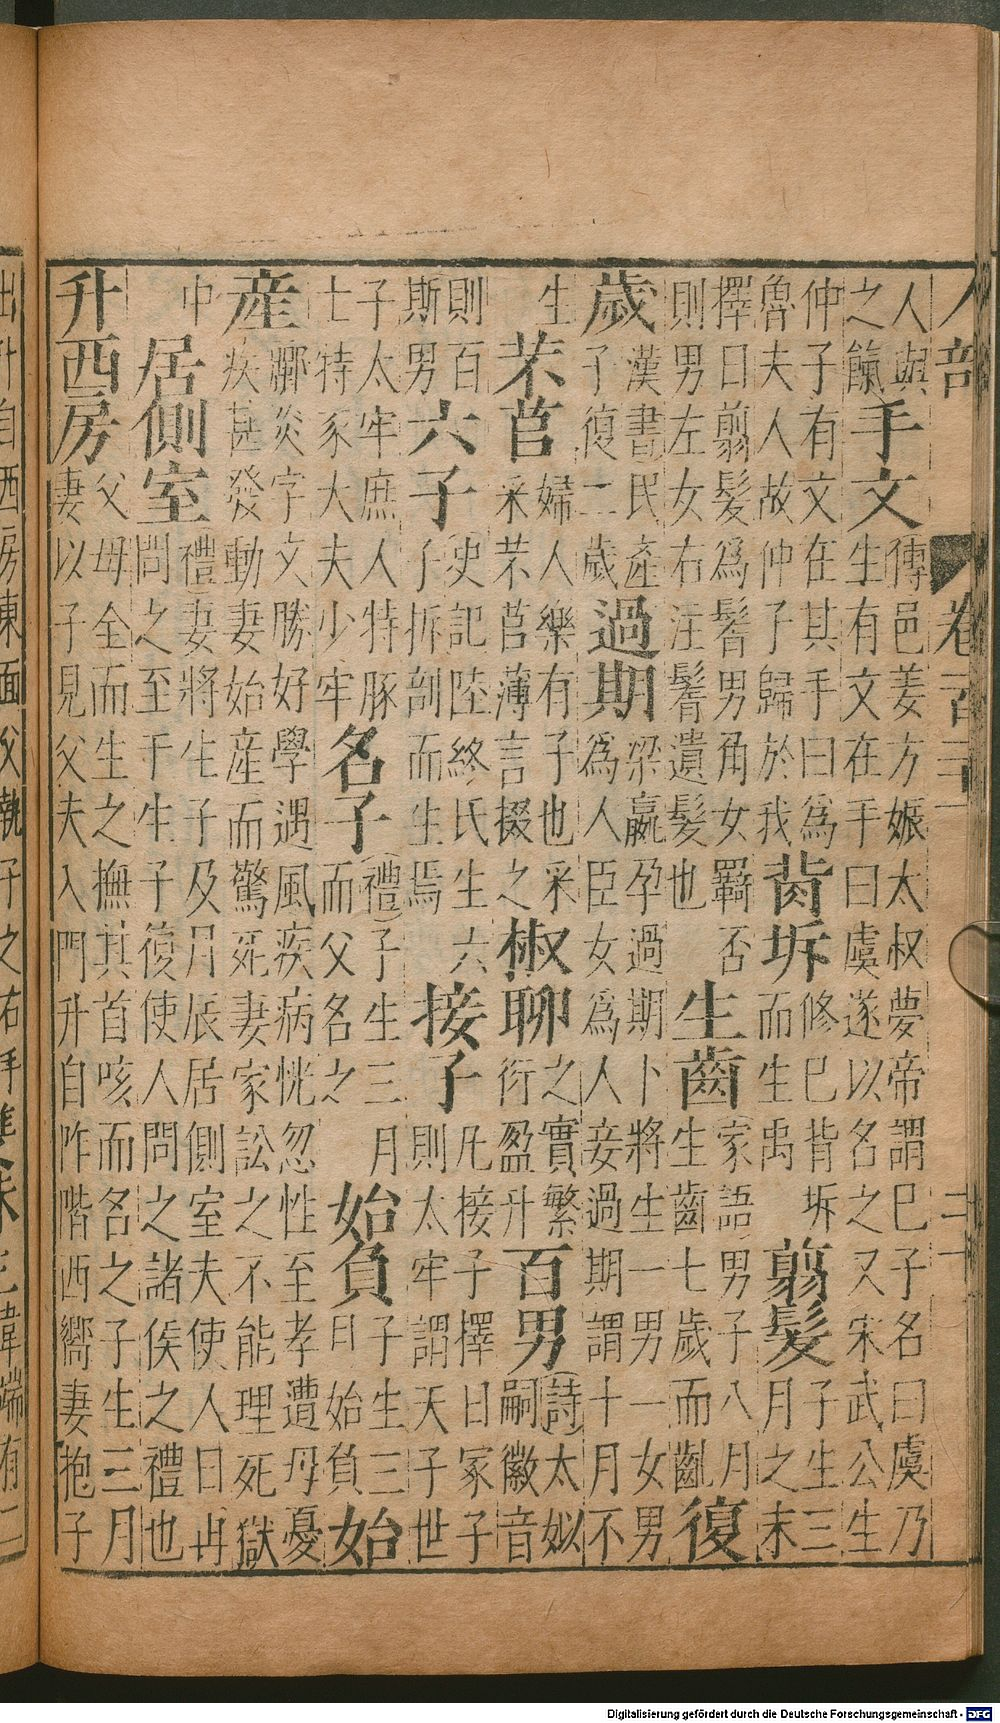 人部 卷百三十一
人與
之餼
手文
傳邑姜方娠太叔夢帝謂巳子名曰虞乃
生有文在手曰虞遂以名之又宋武公生
仲子有文在其手曰為
魯夫人故仲子歸於我
背坼
修巳背坼
而生禹
翦髮
子生三
月之末
擇日翦髮爲鬌男角女羈否
則男左女右注鬌遺髮也
生齒
家語男子八月
生齒七歲而齔
復
歲
漢書民產
子復二歲
過期
梁嬴孕過期卜將生一男一女男
爲人臣女爲人妾過期謂十月不
生
芣苢
婦人樂有子也采
采芣苢薄言掇之
椒聊
之實繁
衍盈升
百男
詩太姒
嗣徽音
則百
斯男
六子
史記陸終氏生六
子拆剖而生焉
接子
凡接子擇日冢子
則太牢謂天子世
子太牢庶人特豚
士特豕大夫少牢
名子
禮子生三月
而父名之
始負
子生三
日始負
始
産
郰炎字文勝好學遇風疾病恍忽性至孝遭母憂
疾甚發動妻始産而驚死妻家訟之不能理死獄
中
居側室
禮妻將生子及月辰居側室夫使人日再
問之至于生子復使人問之諸侯之禮也
升西房
父母全而生之撫其首咳而名之子生三月
妻以子見父夫入門升自阼階西嚮妻抱子
出升自西房東面父執子之右手
Digitalisierung gefördert durch die Deutsche Forschungsgemeinschaft - DFG